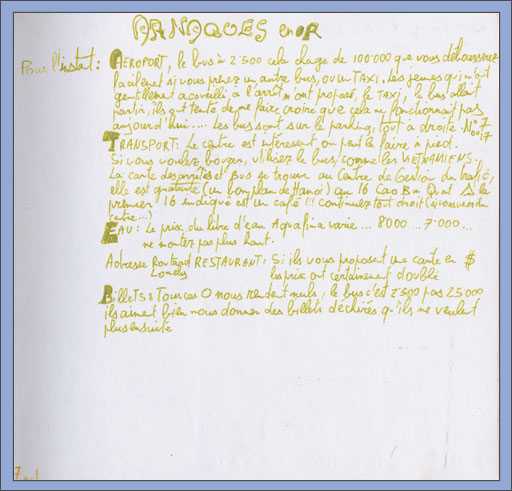 ARNAQUES en OR
Pour l'instant : AEROPORT, le bus à 2'500 cela change de 100'000 que vous déboursez
facilement si vous prenez un autre bus, ou un TAXI. Les jeunes qui m'ont
gentillement accueilli, à l'arrêt, m'ont proposé, le TAXI, le bus allait
partir, ils ont tenté de me faire croire que cela ne fonctionnait pas
aujourd'hui.... Les bus sont sur le parking, tout à droite N° 7
N° 17
TRANSPORT : Le centre est intéressant on peut le faire à pied.
Si vous voulez bouger, utilisez le bus, comme les VIETNAMIENS.
La carte des arrêts et Bus se trouve au Centre de Gestion du trafic,
elle est gratuite (un bon plan de Hanoï) au 16 Cao Ba Q. at Δ le
premier 16 indiqué est un café !!! Continuez tout droit
centre...)
EAU : Le prix du litre d'eau Aquafina varie... 8'000 ... 7'000...
ne montez pas plus haut.
Adresse Routard RESTAURANT : Si ils vous proposent une carte en $
Lonely les prix ont certainement doublé
Billets : Tous ces 0 nous rendent nuls, le bus c'est 2'500 pas 25'000
ils aiment bien nous donner des billets déchirés qu'ils ne veulent
plus ensuite